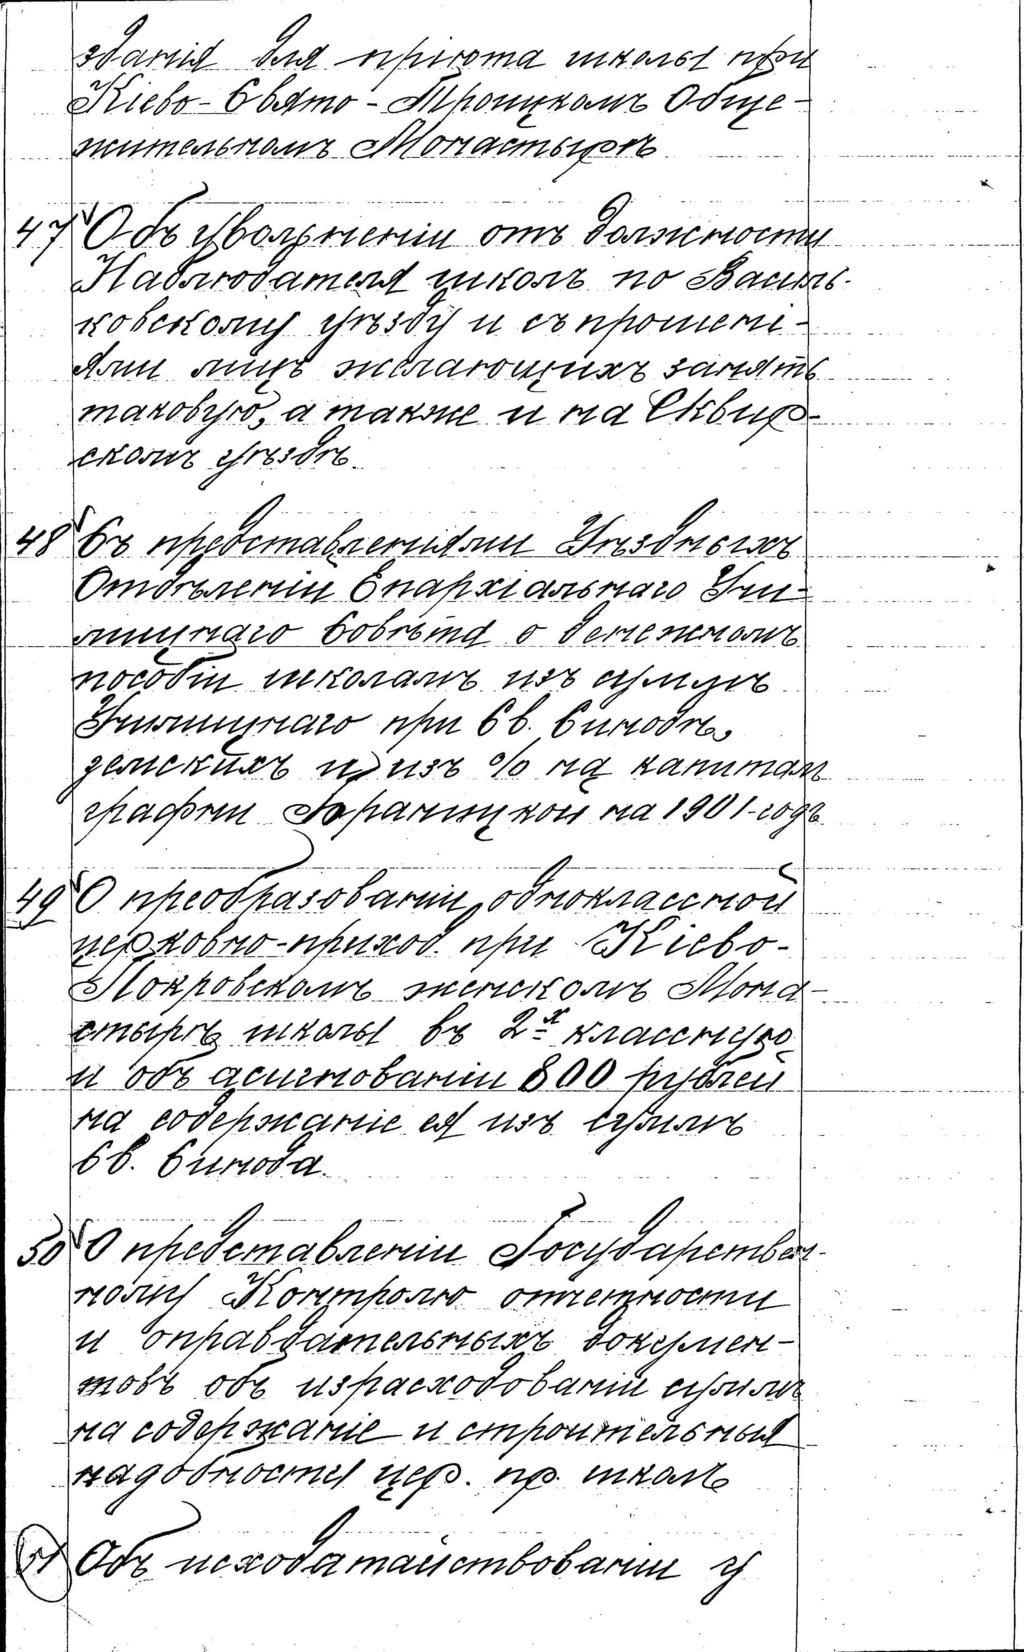 зданія для пріюта школы при
Кіево-Свято-Троицкомъ Обще-
жительномъ Монастырѣ
47 Объ увольненіи отъ должности
Наблюдателя школъ по Василь-
ковскому уѣзду и съ прошені-
ями лицъ желающихъ занять
таковую, а также и на Сквир-
скомъ уѣздѣ.
48 Съ представленіями Уѣздныхъ
Отдѣленій Епархіальнаго Учи-
лищнаго Совѣта о денежномъ
пособіи школамъ изъ суммъ
Училищнаго при Св. Синодѣ,
земскихъ и изъ % на капитал
графни Браницкой на 1901-годъ
49 О преобразованіи одноклассной
церковно-приход. при Кіево-
Покровскомъ женскомъ Мона-
стырѣ школы въ 2х классную
и объ асигнованіи 800 рублей
на содержаніе ея изъ суммъ
Св. Синода.
50 О представленіи Государствен-
ному Контролю отчетности
и оправдательныхъ докумен-
товъ объ израсходованіи суммъ
на содержаніе и строительныя
надобности цер. пр. школъ
51 Объ исходатайствованіи у